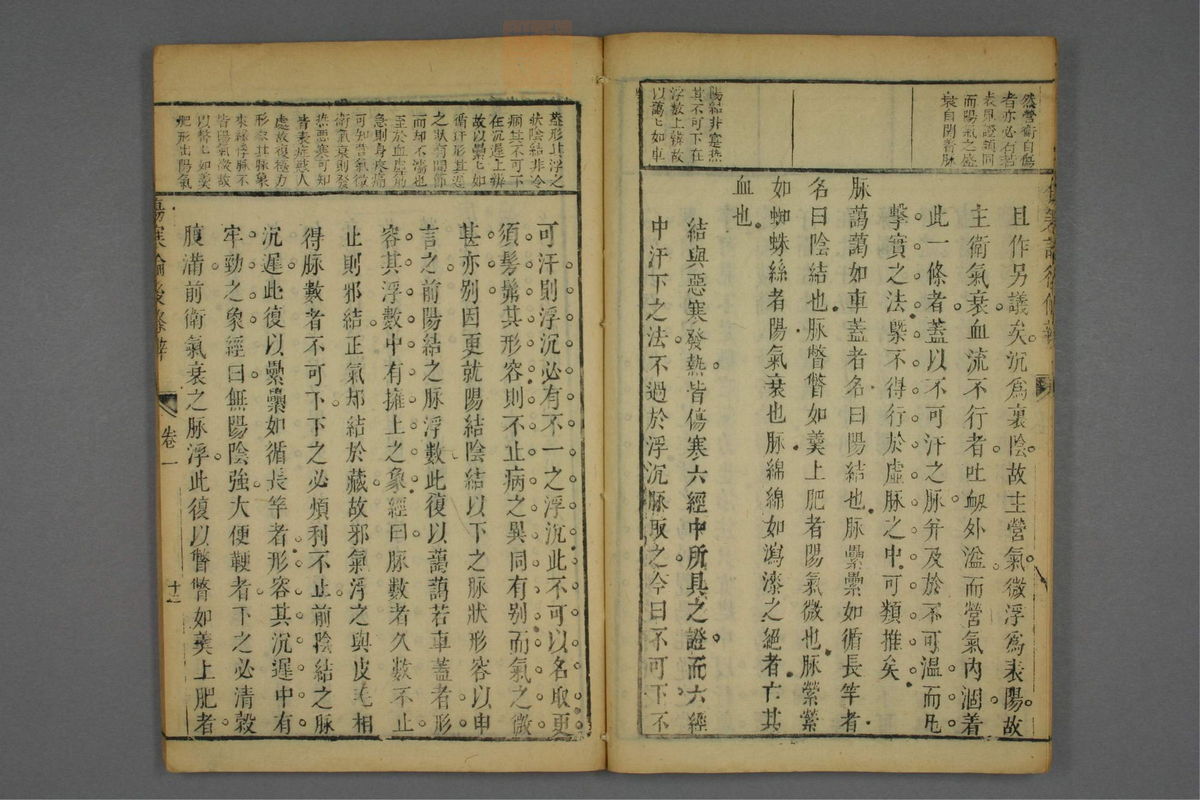 然營衛自傷
者亦必有若
表息證類同
而陽氣之盛
衰自閉著脉
陽結非寔熱
其不可下在
浮數上辨故
以藹藹如車
且作另議矣沉爲裏陰故主營氣微浮爲表陽故
主衛氣衰血流不行者吐衂外溢而營氣內涸着
此一條者蓋以不可汗之脉幷及於不可温而凡
擊實之法槩不得行於虛脉之中可類推矣
脉藹藹如車蓋者名曰陽結也脉纍纍如循長竿者
名曰陰結也脉瞥瞥如羹上肥者陽氣微也脉縈縈
如蜘蛛絲者陽氣衰也脉綿綿如瀉漆之絕者亡其
血也
結與惡寒發熱皆傷寒六經中所具之證而六經
中汗下之法不過於浮沉脉取之今曰不可下不
蓋形其浮之
狀陰結非冷
病其不可下
在沉遲上辨
故以纍纍如
循汗形其遲
之狀有間節
而却不濇也
至於血虛筋
急則身疼痛
可知營氣微
衛氣衰則發
熱惡寒可知
皆表症惑人
處故復極力
形容其脉象
來辨浮脉不
皆陽氣盛故
以瞥瞥如羹
肥形出陽氣
可汗則浮沉必有不一之浮沉此不可以名取更
須髣髴其形容則不止病之異同有别而氣之微
甚亦别因更就陽結陰結以下之脉狀形容以申
言之前陽結之脉浮數此復以藹藹若車蓋者形
容其浮數中有擁上之象經曰脉數者久數不止
止則邪結正氣却結於藏故邪氣浮之與皮毛相
得脉數者不可下下之必煩利不止前陰結之脉
沉遲此復以纍纍如循長竿者形容其沉遲中有
牢勁之象經曰無陽陰強大便鞕者下之必清穀
腹滿前衛氣衰之脉浮此復以瞥瞥如羹上肥者
傷寒論後條辨
卷一
十二